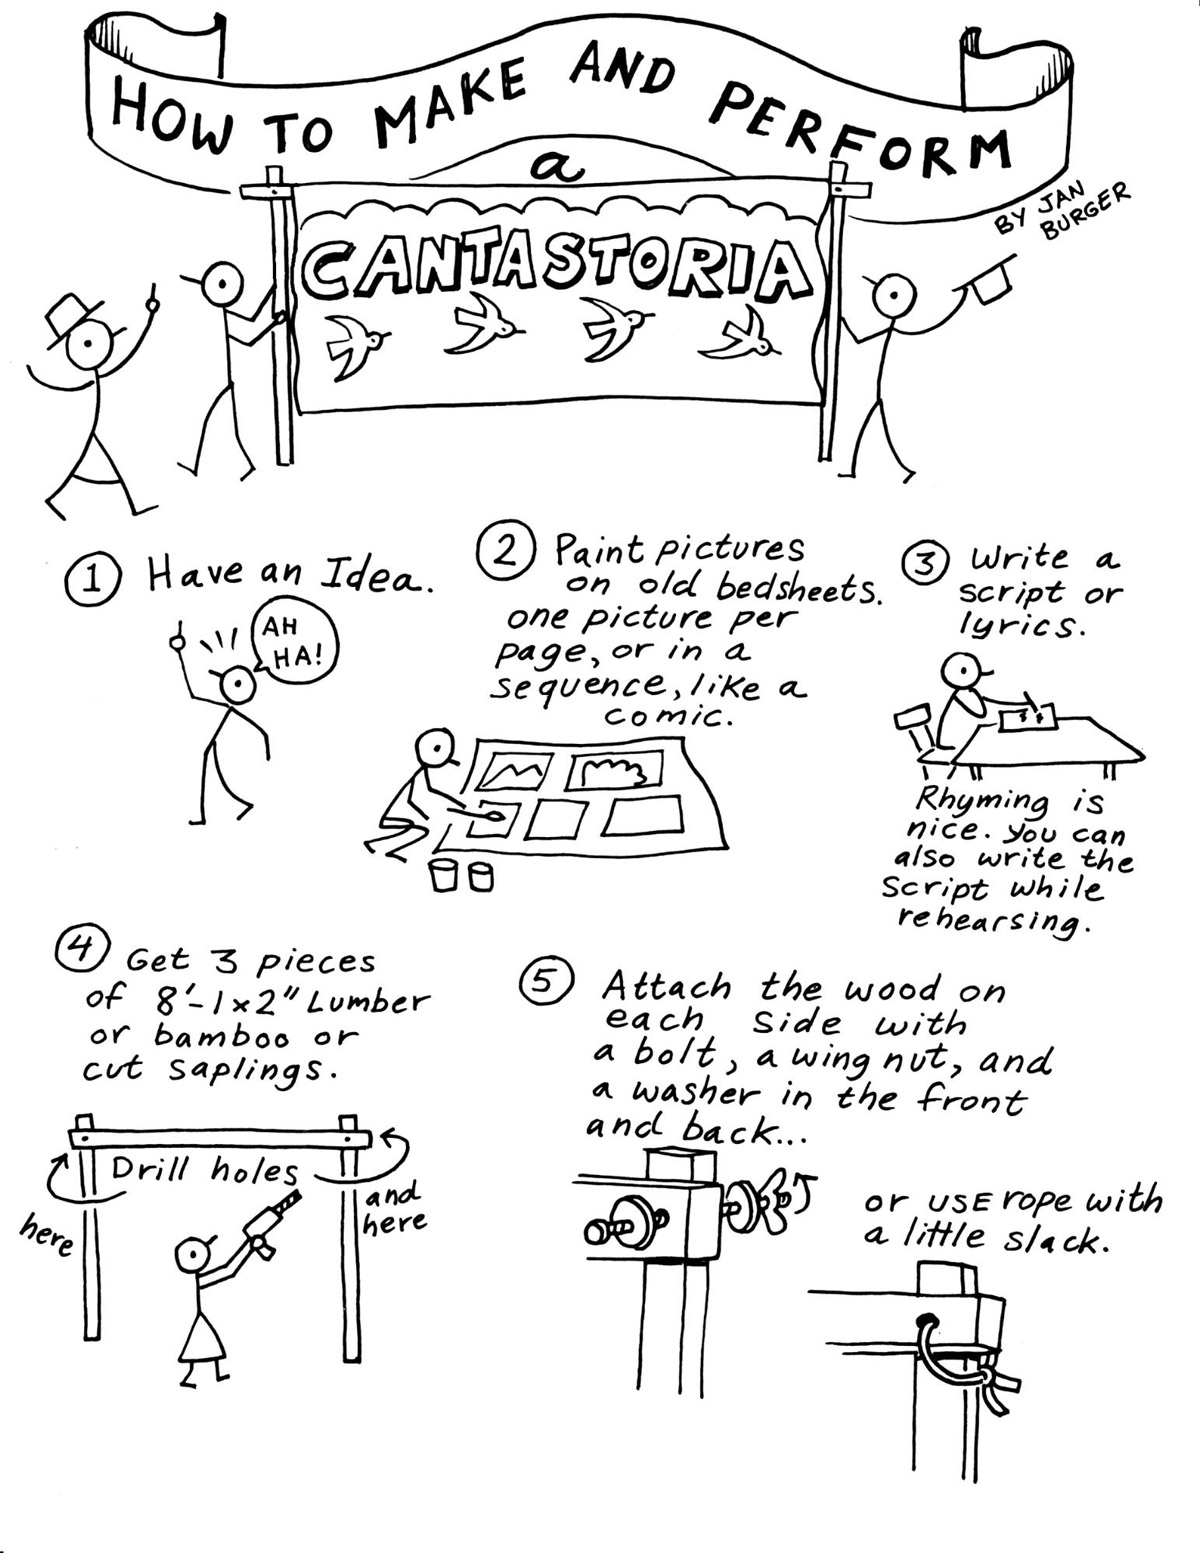 HOW TO MAKE AND PERFORM
a
CANTASTORIA
BY JAN
BURGER
1 Have an Idea.
AH
HA!
2 Paint pictures
on old bedsheets.
one picture per
page, or in a
sequence, like a
comic.
3 Write a
script or
lyrics.
Rhyming is
nice. You can
also write the
script while
rehearsing.
4 Get 3 pieces
of 8'-1x2" Lumber
or bamboo or
cut saplings.
Drill holes
here
and
here
5 Attach the wood on
each side with
a bolt, a wing nut, and
a washer in the front
and back...
or USE rope with
a little slack.